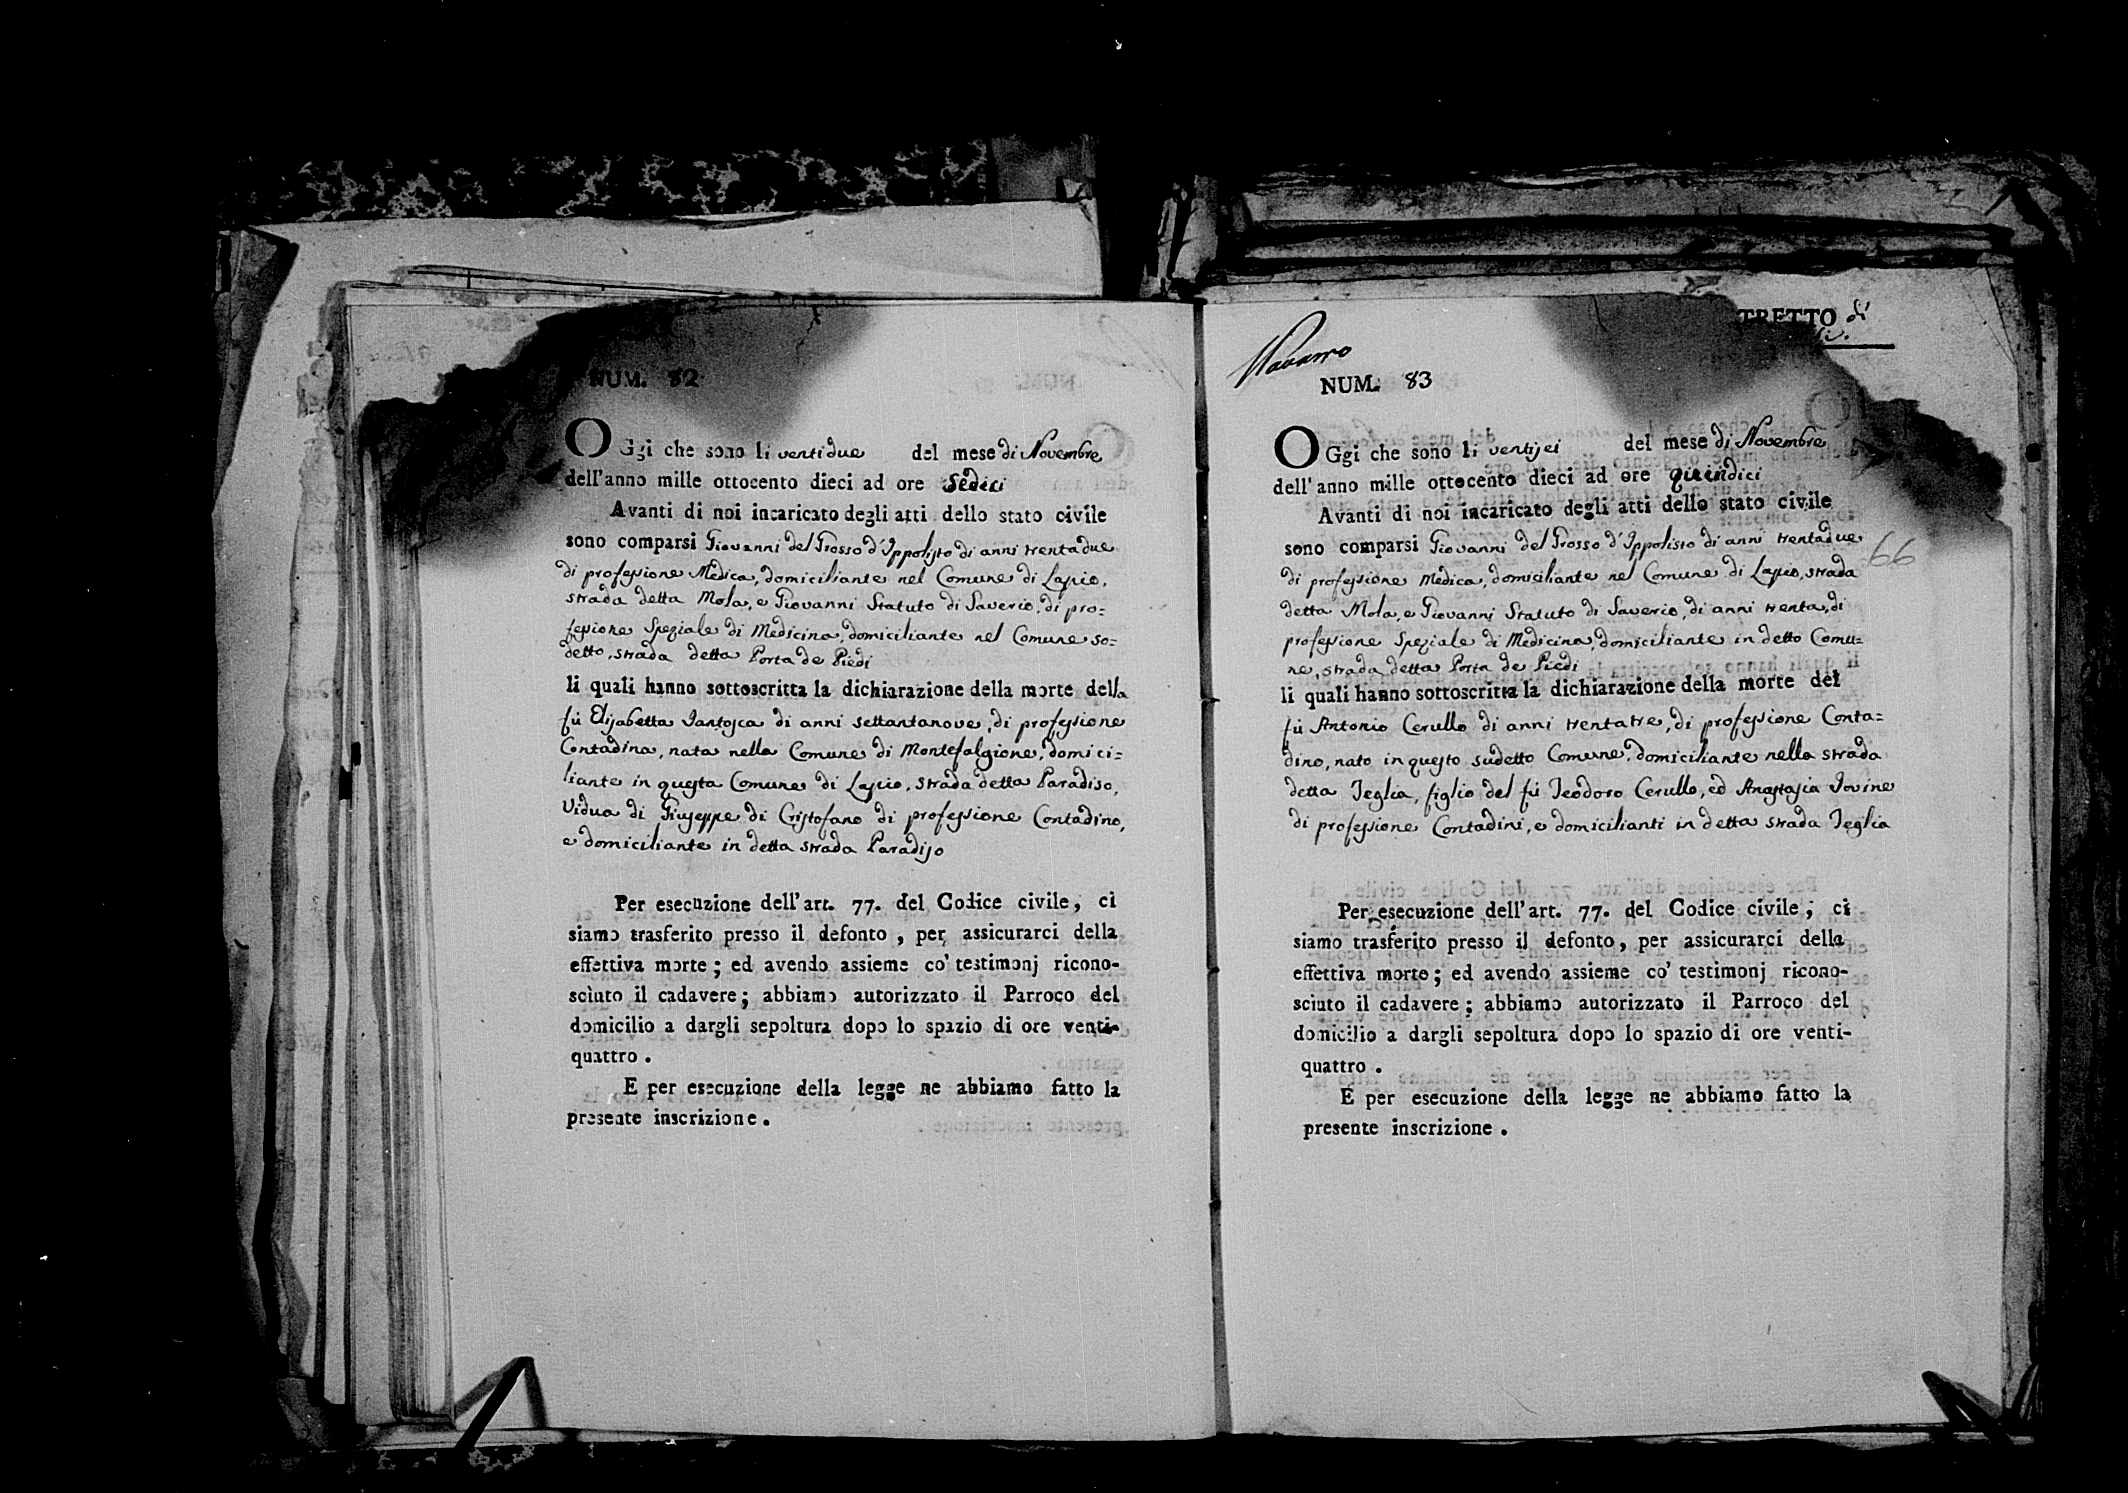 NUM. 82
OGgi che sono li ventidue del mese di Novembre
dell'anno mille ottocento dieci ad ore Sedici
Avanti di noi incaricato degli atti dello stato civile
sono comparsi Giovanni del Grosso d'Ippolisto di anni trentadue
di professione Medica, domiciliante nel Comune di Lapio,
strada detta Mola, e Giovanni Statuto di Saverio, di pro=
fessione Speziale di Medicina, domiciliante nel Comune so=
detto, strada detta Porta de Piedi
li quali hanno sottoscritta la dichiarazione della morte della
fù Elisabetta Iantosca di anni settantanove, di professione
Contadina, nata nella Comune di Montefalgione, domici=
liante in questa Comune di Lapio, strada detta Paradiso,
Vidua di Giuseppe di Cristofano di professione Contadino,
e domiciliante in detta strada Paradiso
Per esecuzione dell'art. 77. del Codice civile, ci
siamo trasferito presso il defonto, per assicurarci della
effettiva morte; ed avendo assieme co' testimonj ricono-
sciuto il cadavere; abbiamo autorizzato il Parroco del
domicilio a dargli sepoltura dopo lo spazio di ore venti-
quattro.
E per esecuzione della legge ne abbiamo fatto la
presente inscrizione.
TRETTO di
Navarro
NUM. 83
OGgi che sono li ventisei del mese di Novembre
dell'anno mille ottocento dieci ad ore quindici
Avanti di noi incaricato degli atti dello stato civile
sono comparsi Giovanni del Grosso d'Ippolisto di anni trentadue
66
di professione Medica, domiciliante nel Comune di Lapio, strada
detta Mola, e Giovanni Statuto di Saverio, di anni trenta, di
professione Speziale di Medicina, domiciliante in detto Comu=
ne, strada detta Porta de Piedi
li quali hanno sottoscritta la dichiarazione della morte del
fù Antonio Cerullo di anni trentatre, di professione Conta=
dino, nato in questo sudetto Comune, domiciliante nella strada
detta Teglia, figlio del fù Teodoro Cerullo, ed Anastasia Iovine
di professione Contadini, e domicilianti in detta strada Teglia
Per esecuzione dell'art. 77. del Codice civile, ci
siamo trasferito presso il defonto, per assicurarci della
effettiva morte; ed avendo assieme co' testimonj ricono-
sciuto il cadavere; abbiamo autorizzato il Parroco del
domicilio a dargli sepoltura dopo lo spazio di ore venti-
quattro.
E per esecuzione della legge ne abbiamo fatto la
presente inscrizione.